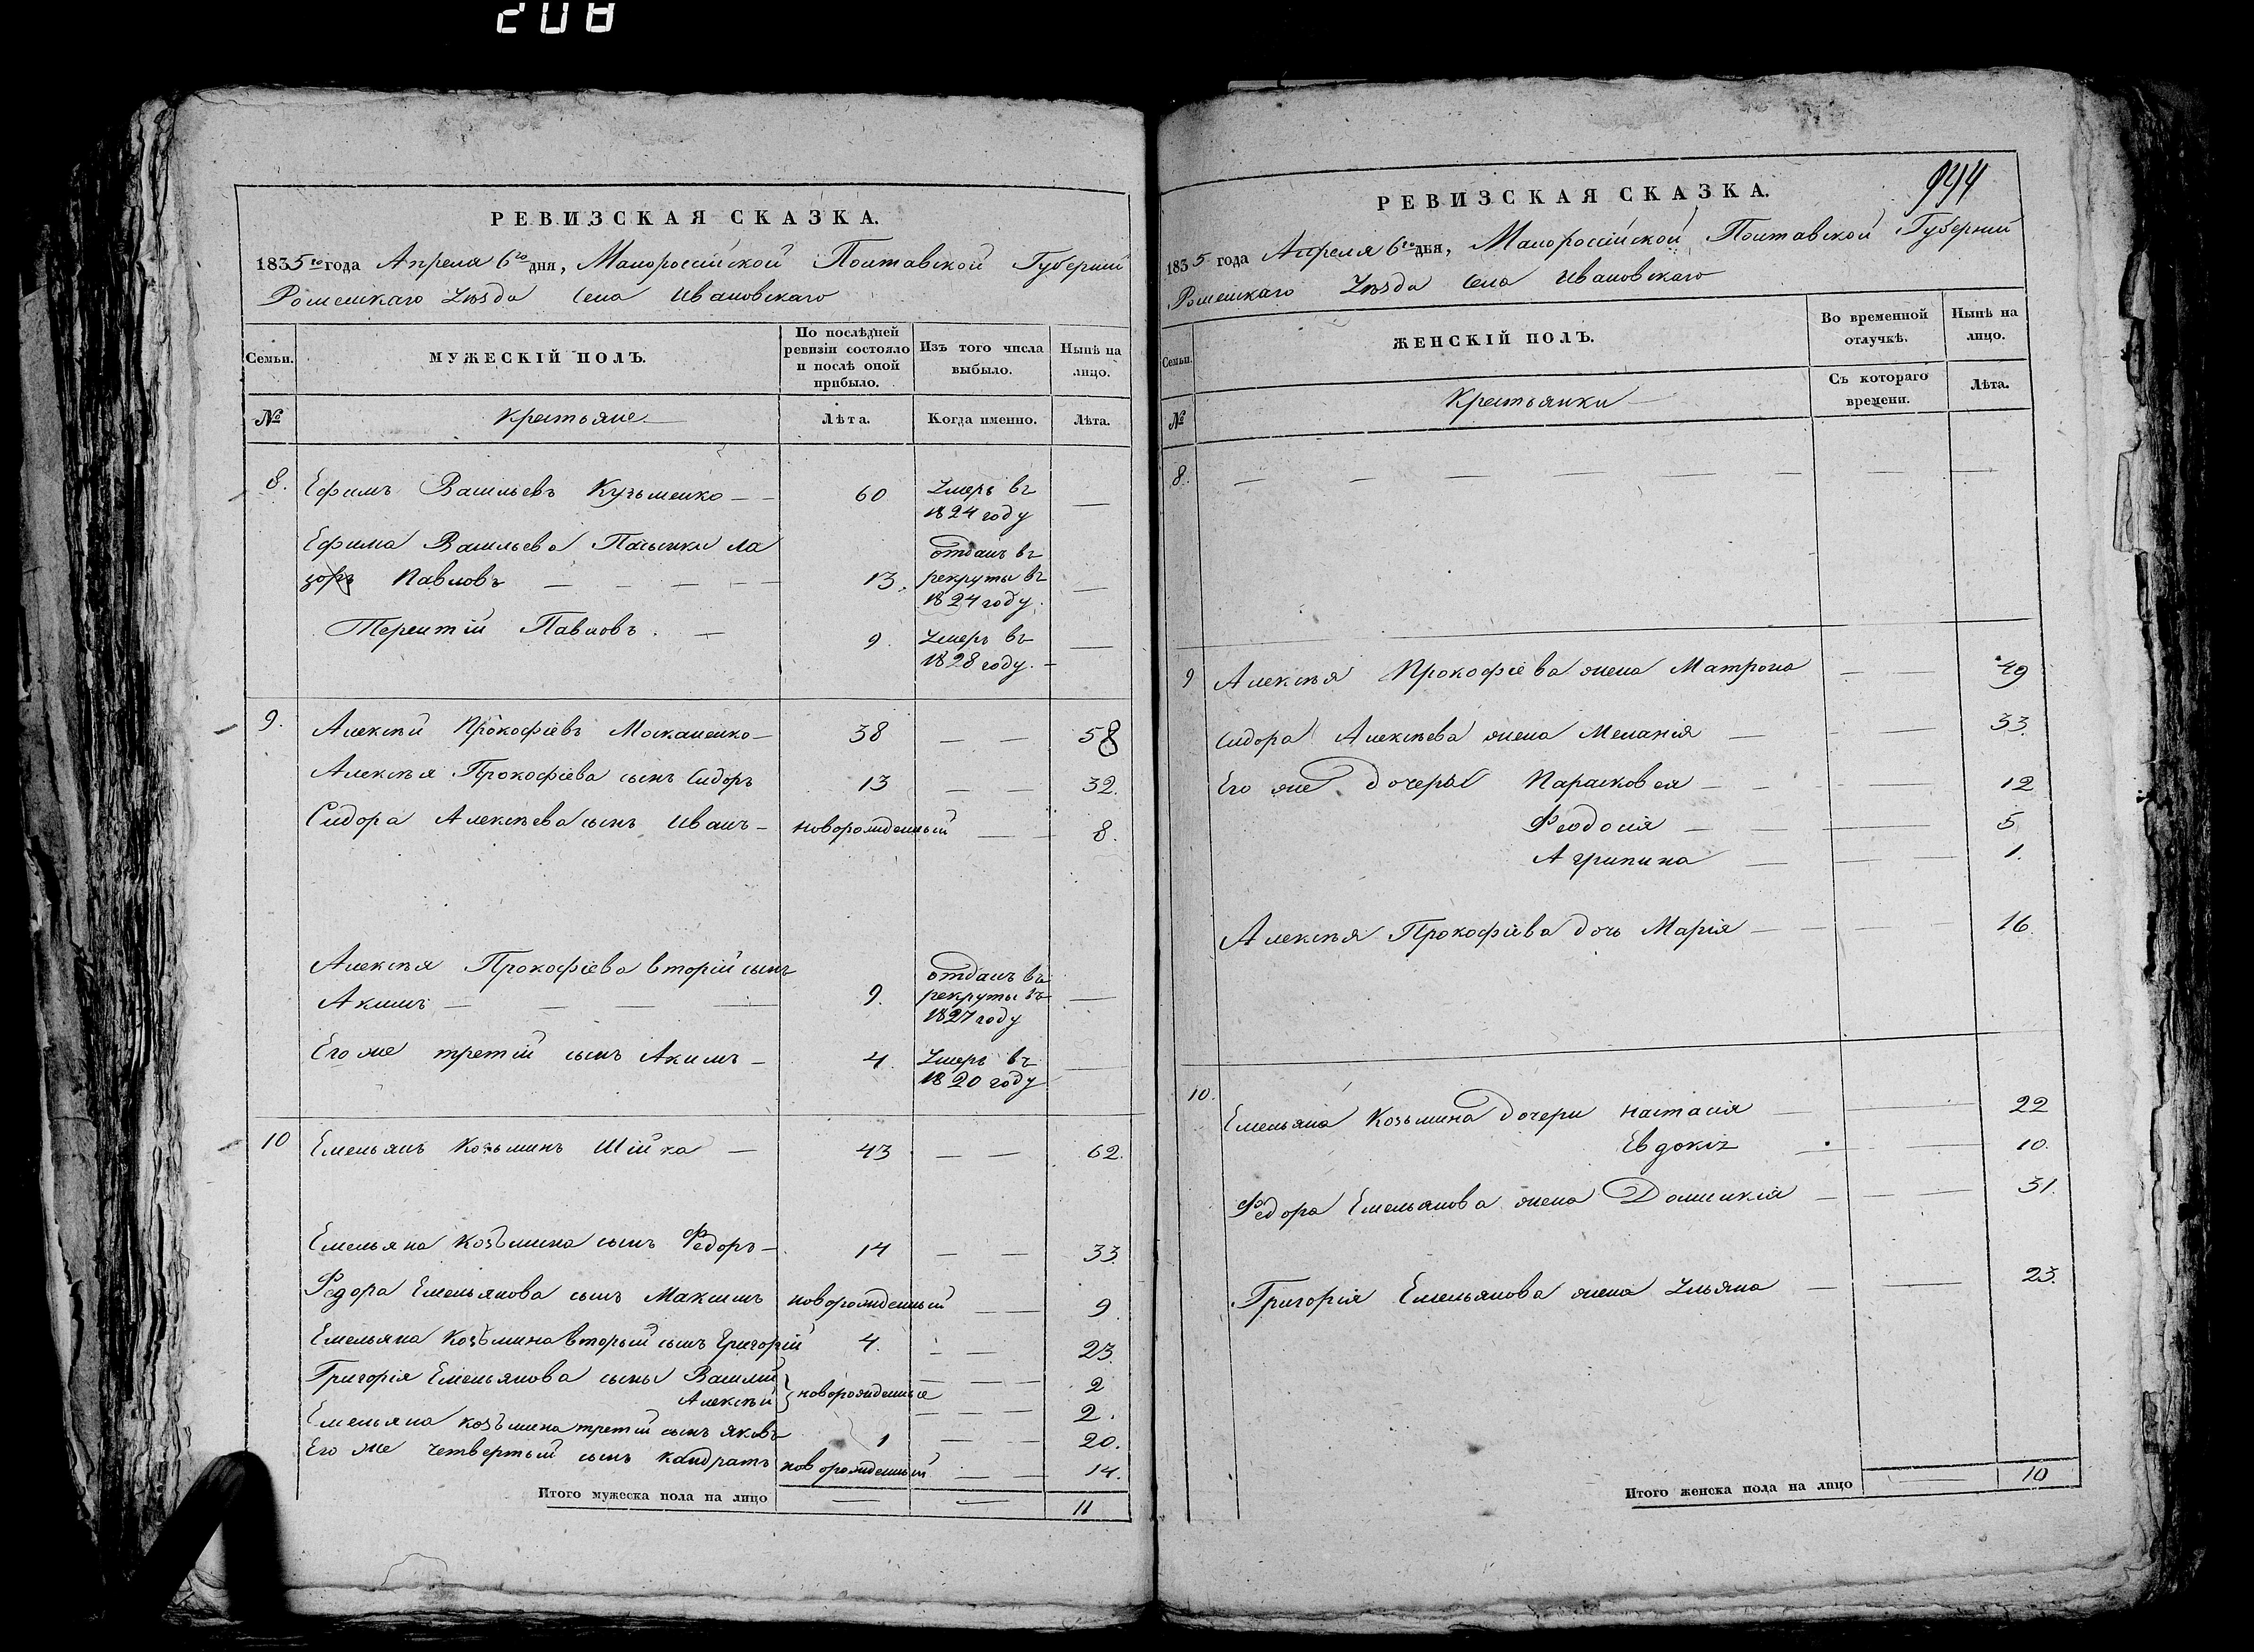 208
РЕВИЗСКАЯ СКАЗКА.
1835го года Апреля 6го дня, Малоросiйской Полтавской Губернии
Роменскаго Уезда Села Ивановскаго
Семьи.
МУЖЕСКIЙ ПОЛЪ.
По послѣдней ревизiи состояло и послѣ оной прибыло.
Изъ того числа выбыло.
Нынѣ на лицо.
№
Крестьяне
Лѣта.
Когда именно.
Лѣта.
8. Ефимъ Васильевъ Кузьменко 60 Умеръ въ
1824 году
Ефима Васильева Пасынки Ла
заръ Павловъ 13. отданъ въ
рекруты въ
1824 году.
Терентiй Павловъ. 9. Умеръ въ
1828 году.
9. Алексѣй Прокофiевъ Москаленко 38 58
Алексѣя Прокофiева сынъ Сидоръ 13 32.
Сидора Алексѣева сынъ Иванъ новорожденный 8.
Алексѣя Прокофiева вторiй сынъ
Акимъ 9. отданъ въ
рекруты въ
1827 году
Его же третiй сынъ Акимъ 4. Умеръ въ
1820 году
10 Емельянъ Козьминъ Шiйка 43 62.
Емельяна Козьмина сынъ Федоръ 14 33.
Федора Емельянова сынъ Максимъ новорожденный 9.
Емельяна Козьмина вторый сынъ Григорiй 4. 23.
Григорiя Емельянова сыны Василiй 2
Алексѣй } новорожденные 2.
Емельяна Козьмина третiй сынъ Яковъ 1 20.
Его же четвертый сынъ Кандратъ новорожденный 14.
Итого мужеска пола на лицо 11
944
РЕВИЗСКАЯ СКАЗКА.
1835 года Апреля 6го дня, Малоросiйской Полтавской Губернии
Роменскаго Уезда Села Ивановскаго
Семьи.
ЖЕНСКIЙ ПОЛЪ.
Во временной отлучкѣ.
Нынѣ на лицо.
№
Крестьянки
Съ котораго времени.
Лѣта.
8.
9 Алексѣя Прокофiева жена Матрона 49
Сидора Алексѣева жена Меланiя 33.
Его же дочеры Парасковея 12
Феодосiя 5
Агрипина 1.
Алексѣя Прокофiева дочь Марiя 16.
10. Емельяна Козьмина дочери Настасiя 22
Евдокiя 10.
Федора Емельянова жена Домникiя 31.
Григорiя Емельянова жена Ульяна 23.
Итого женска пола на лицо 10